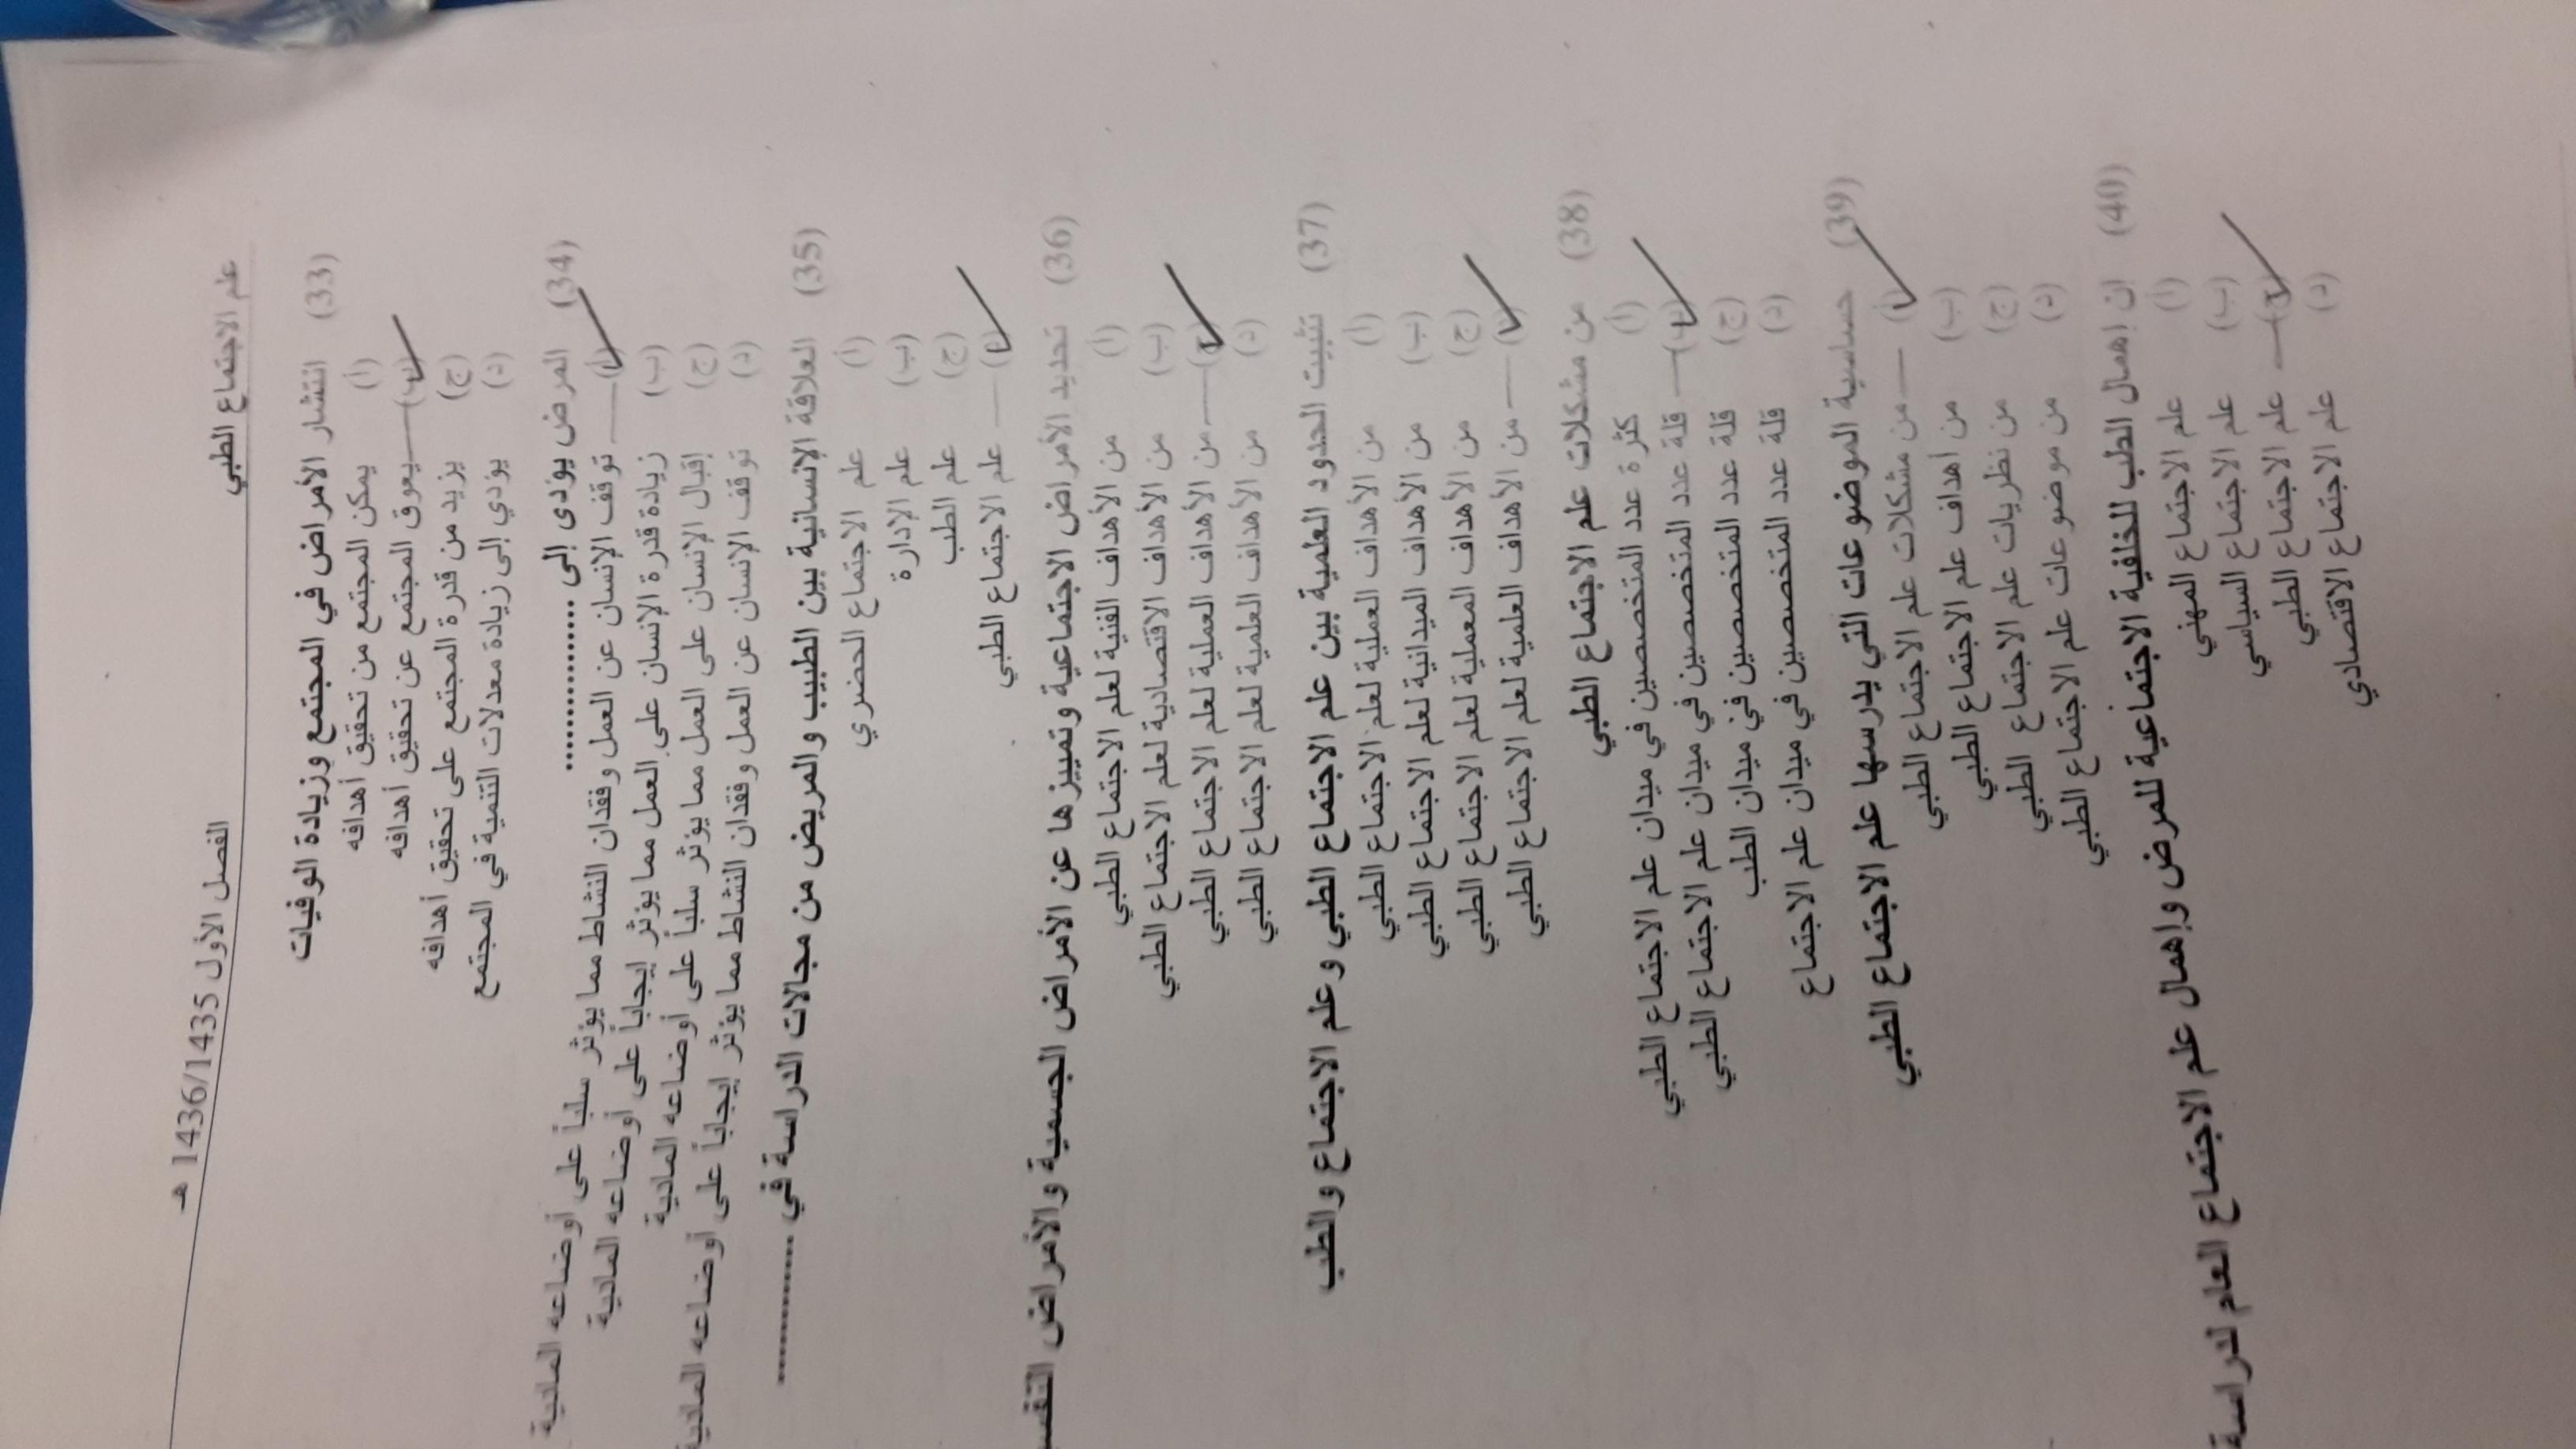 علم الاجتماع الطبي
الفصل الأول 1436/1435 هـ
(33) انتشار الأمراض في المجتمع وزيادة الوفيات
(أ) يمكن المجتمع من تحقيق أهدافه
(ب) يعوق المجتمع عن تحقيق أهدافه
(ج) يزيد من قدرة المجتمع على تحقيق أهدافه
(د) يؤدي إلى زيادة معدلات التنمية في المجتمع
(34) المرض يؤدى إلى ...............
(أ) توقف الإنسان عن العمل وفقدان النشاط مما يؤثر سلباً على أوضاعه المادية
(ب) زيادة قدرة الإنسان على العمل مما يؤثر إيجاباً على أوضاعه المادية
(ج) إقبال الإنسان على العمل مما يؤثر سلباً على أوضاعه المادية
(د) توقف الإنسان عن العمل وفقدان النشاط مما يؤثر إيجاباً على أوضاعه المادية
(35) العلاقة الإنسانية بين الطبيب والمريض من مجالات الدراسة في ...............
(أ) علم الاجتماع الحضري
(ب) علم الإدارة
(ج) علم الطب
(د) علم الاجتماع الطبي
(36) تحديد الأمراض الاجتماعية وتمييزها عن الأمراض الجسمية والأمراض
(أ) من الأهداف الفنية لعلم الاجتماع الطبي
(ب) من الأهداف الاقتصادية لعلم الاجتماع الطبي
(ج) من الأهداف العملية لعلم الاجتماع الطبي
(د) من الأهداف العلمية لعلم الاجتماع الطبي
(37) تثبيت الحدود العلمية بين علم الاجتماع الطبي وعلم الاجتماع والطب
(أ) من الأهداف العملية لعلم الاجتماع الطبي
(ب) من الأهداف الميدانية لعلم الاجتماع الطبي
(ج) من الأهداف المعملية لعلم الاجتماع الطبي
(د) من الأهداف العلمية لعلم الاجتماع الطبي
(38) من مشكلات علم الاجتماع الطبي
(أ) كثرة عدد المتخصصين في ميدان علم الاجتماع الطبي
(ب) قلة عدد المتخصصين في ميدان علم الاجتماع الطبي
(ج) قلة عدد المتخصصين في ميدان الطب
(د) قلة عدد المتخصصين في ميدان علم الاجتماع
(39) حساسية الموضوعات التي يدرسها علم الاجتماع الطبي
(أ) من مشكلات علم الاجتماع الطبي
(ب) من أهداف علم الاجتماع الطبي
(ج) من نظريات علم الاجتماع الطبي
(د) من موضوعات علم الاجتماع الطبي
(40) إن إهمال الطب للخلفية الاجتماعية للمرض وإهمال علم الاجتماع العام لدراسة
(أ) علم الاجتماع المهني
(ب) علم الاجتماع السياسي
(ج) علم الاجتماع الطبي
(د) علم الاجتماع الاقتصادي